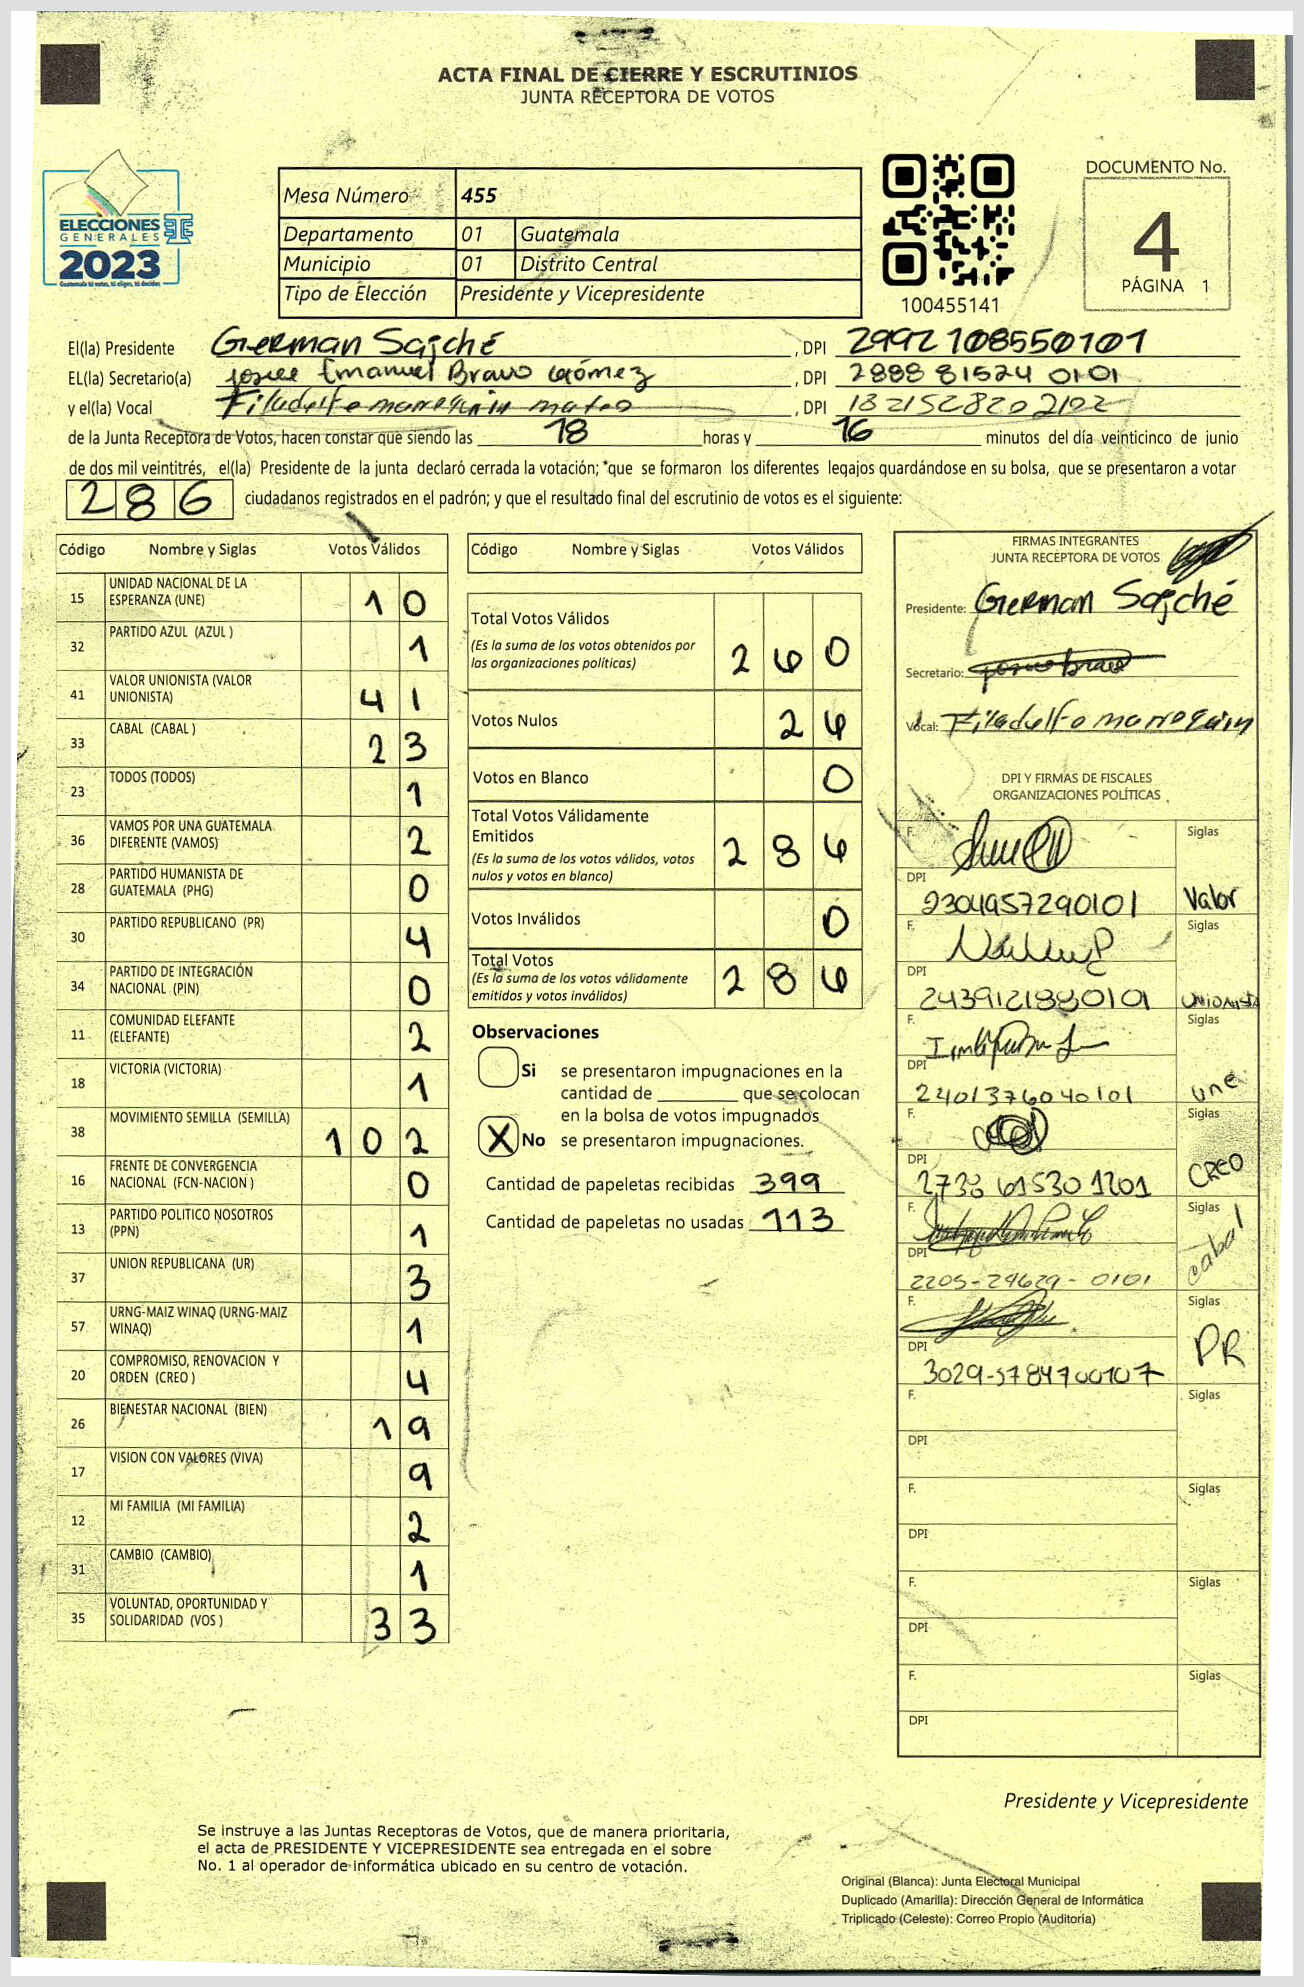 ACTA FINAL DE CIERRE Y ESCRUTINIOS
JUNTA RECEPTORA DE VOTOS
ELECCIONES
GENERALES
2023
Guatemala tú votas, tú eliges, tú decides
Mesa Número 455
Departamento 01 Guatemala
Municipio 01 Distrito Central
Tipo de Elección Presidente y Vicepresidente
100455141
DOCUMENTO No.
4
PÁGINA 1
El(la) Presidente German Sajché , DPI 2992 108550101
EL(la) Secretario(a) Josue Emanuel Bravo Gómez , DPI 2888 81524 0101
y el(la) Vocal Filadelfo marroquin mateo , DPI 1321528202102
de la Junta Receptora de Votos, hacen constar que siendo las 18 horas y 16 minutos del día veinticinco de junio
de dos mil veintitrés, el(la) Presidente de la junta declaró cerrada la votación; *que se formaron los diferentes legajos guardándose en su bolsa, que se presentaron a votar
286 ciudadanos registrados en el padrón; y que el resultado final del escrutinio de votos es el siguiente:
Código Nombre y Siglas Votos Válidos
15 UNIDAD NACIONAL DE LA ESPERANZA (UNE) 10
32 PARTIDO AZUL (AZUL ) 1
41 VALOR UNIONISTA (VALOR UNIONISTA) 41
33 CABAL (CABAL ) 23
23 TODOS (TODOS) 1
36 VAMOS POR UNA GUATEMALA DIFERENTE (VAMOS) 2
28 PARTIDO HUMANISTA DE GUATEMALA (PHG) 0
30 PARTIDO REPUBLICANO (PR) 4
34 PARTIDO DE INTEGRACIÓN NACIONAL (PIN) 0
11 COMUNIDAD ELEFANTE (ELEFANTE) 2
18 VICTORIA (VICTORIA) 1
38 MOVIMIENTO SEMILLA (SEMILLA) 102
16 FRENTE DE CONVERGENCIA NACIONAL (FCN-NACION ) 0
13 PARTIDO POLITICO NOSOTROS (PPN) 1
37 UNION REPUBLICANA (UR) 3
57 URNG-MAIZ WINAQ (URNG-MAIZ WINAQ) 1
20 COMPROMISO, RENOVACION Y ORDEN (CREO ) 4
26 BIENESTAR NACIONAL (BIEN) 19
17 VISION CON VALORES (VIVA) 9
12 MI FAMILIA (MI FAMILIA) 2
31 CAMBIO (CAMBIO) 1
35 VOLUNTAD, OPORTUNIDAD Y SOLIDARIDAD (VOS ) 33
Código Nombre y Siglas Votos Válidos
Total Votos Válidos 260
(Es la suma de los votos obtenidos por
las organizaciones políticas)
Votos Nulos 26
Votos en Blanco 0
Total Votos Válidamente
Emitidos 286
(Es la suma de los votos válidos, votos
nulos y votos en blanco)
Votos Inválidos 0
Total Votos 286
(Es la suma de los votos válidamente
emitidos y votos inválidos)
Observaciones
Si se presentaron impugnaciones en la
cantidad de ________ que se colocan
en la bolsa de votos impugnados
X No se presentaron impugnaciones.
Cantidad de papeletas recibidas 399
Cantidad de papeletas no usadas 113
FIRMAS INTEGRANTES
JUNTA RECEPTORA DE VOTOS
Presidente: German Sajché
Secretario: Josue Bravo
Vocal: Filadelfo marroquin
DPI Y FIRMAS DE FISCALES
ORGANIZACIONES POLÍTICAS
F. Siglas
DPI 2304957290101 Valor
F. Siglas
DPI 2439121880101 UNIONISTA
F. Siglas
DPI 2401376040101 une
F. Siglas
DPI 2738 61530 1201 CREO
F. Siglas
DPI 2205-29629-0101 cabal
F. Siglas
DPI 3029-5784700107 PR
F. Siglas
DPI
F. Siglas
DPI
F. Siglas
DPI
F. Siglas
DPI
Presidente y Vicepresidente
Se instruye a las Juntas Receptoras de Votos, que de manera prioritaria,
el acta de PRESIDENTE Y VICEPRESIDENTE sea entregada en el sobre
No. 1 al operador de informática ubicado en su centro de votación.
Original (Blanca): Junta Electoral Municipal
Duplicado (Amarilla): Dirección General de Informática
Triplicado (Celeste): Correo Propio (Auditoría)